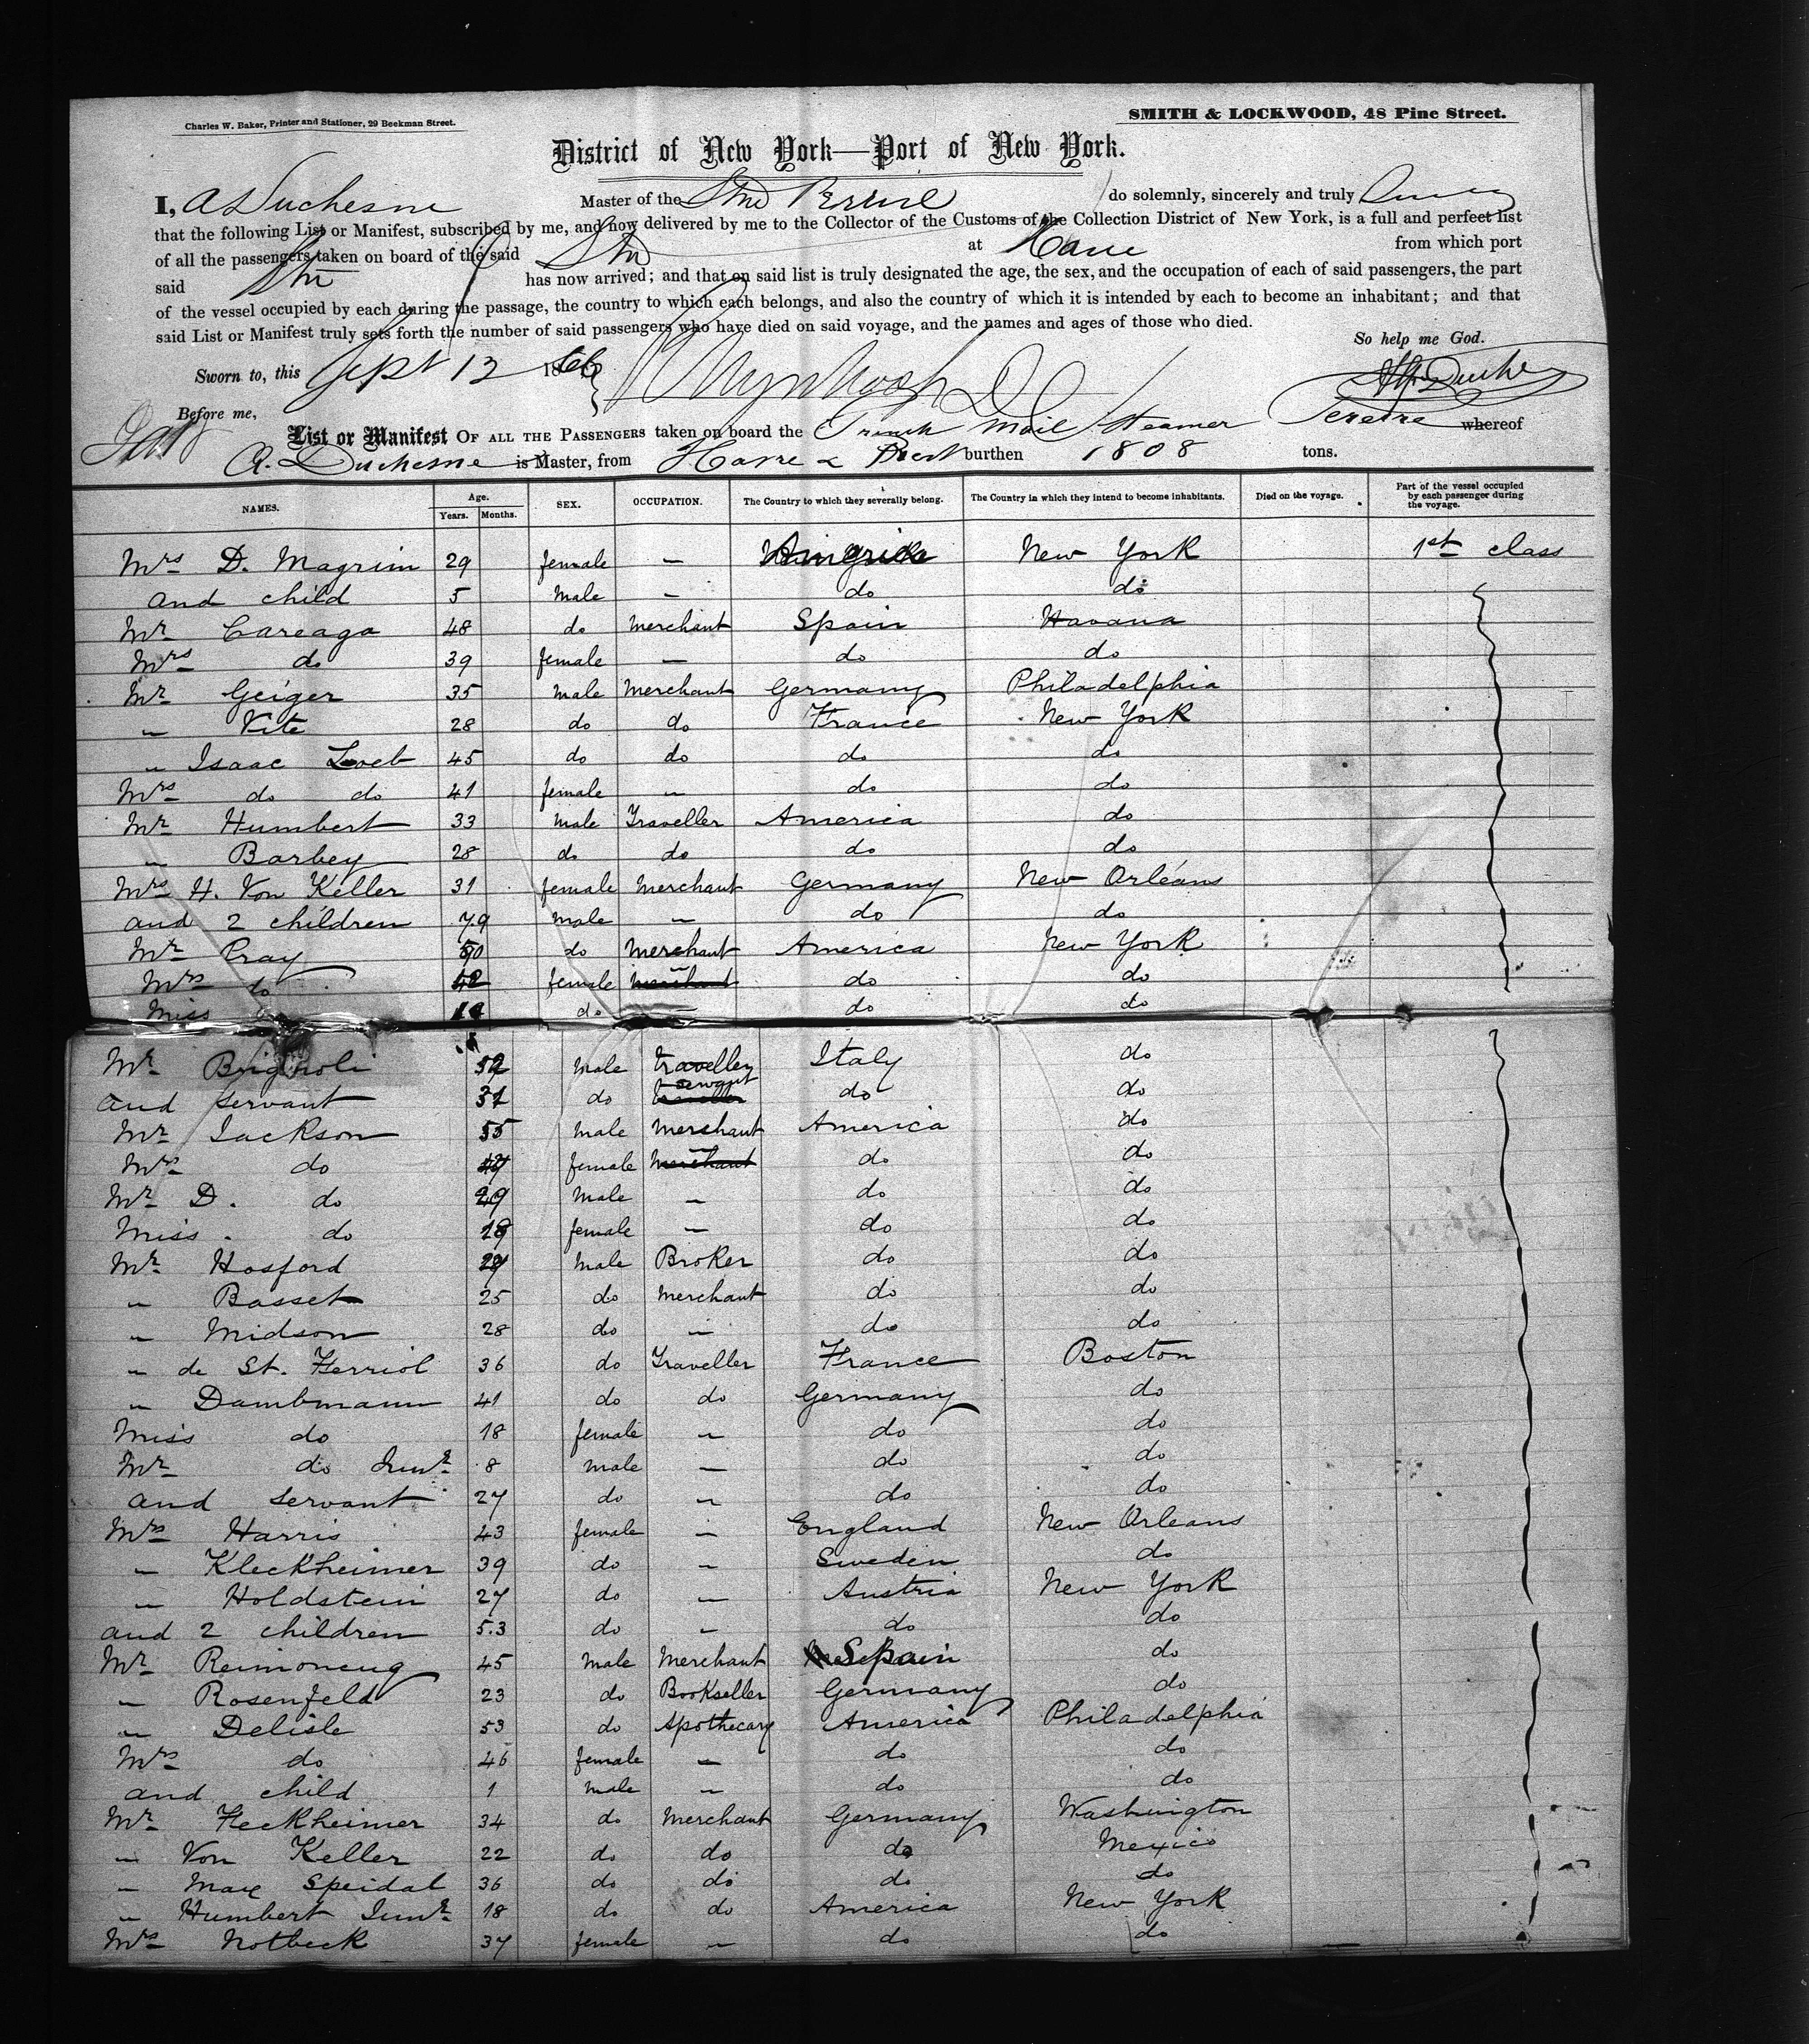 Charles W. Baker, Printer and Stationer, 29 Beekman Street.
SMITH & LOCKWOOD, 48 Pine Street.
District of New York—Port of New York.
I, A Duchesne Master of the Stm do solemnly, sincerely and truly
that the following List or Manifest, subscribed by me, and now delivered by me to the Collector of the Customs of the Collection District of New York, is a full and perfect list
of all the passengers taken on board of the said Stm at Havre from which port
said Stm has now arrived; and that on said list is truly designated the age, the sex, and the occupation of each of said passengers, the part
of the vessel occupied by each during the passage, the country to which each belongs, and also the country of which it is intended by each to become an inhabitant; and that
said List or Manifest truly sets forth the number of said passengers who have died on said voyage, and the names and ages of those who died.
So help me God.
Sworn to, this Sept 12 1866
Before me,
List or Manifest OF ALL THE PASSENGERS taken on board the French Mail Steamer Pereire whereof
A. Duchesne is Master, from Havre & Brest burthen 1808 tons.
NAMES. Age. Years. Months. SEX. OCCUPATION. The Country to which they severally belong. The Country in which they intend to become inhabitants. Died on the voyage. Part of the vessel occupied by each passenger during the voyage.
Mrs D. Magrim 29 female — New York 1st class
and child 5 male — do do
Mr Careaga 48 do Merchant Spain Havana
Mrs do 39 female — do do
Mr Geiger 35 male Merchant Germany Philadelphia
" Vite 28 do do France New York
" Isaac Loeb 45 do do do do
Mrs do do 41 female — do do
Mr Humbert 33 male Traveller America do
" Barbey 28 do do do do
Mrs H. Von Keller 31 female Merchant Germany New Orleans
and 2 children 7.9 male — do do
Mr Cray 50 do Merchant America New York
Mrs do 42 female merchant do do
Miss do do — do do
Mr Brignoli 52 male traveller Italy do
and servant 31 do servant do do
Mr Jackson 55 male Merchant America do
Mrs do female merchant do do
Mr D. do 29 male — do do
Miss do 18 female — do do
Mr Hosford male Broker do do
" Basset 25 do Merchant do do
" Midson 28 do — do do
" de St. Ferriol 36 do Traveller France Boston
" Dambmann 41 do do Germany do
Miss do 18 female — do do
Mr do Junr 8 male — do do
and servant 27 do — do do
Mrs Harris 43 female — England New Orleans
" Kleckheimer 39 do — Sweden do
" Holdstein 27 do — Austria New York
and 2 children 5.3 do — do do
Mr Reimoneng 45 male Merchant Spain do
" Rosenfeld 23 do Bookseller Germany do
" Delisle 53 do Apothecary America Philadelphia
Mrs do 46 female — do do
and child 1 male — do do
Mr Fleckheimer 34 do Merchant Germany Washington
" Von Keller 22 do do do Mexico
" Max Speidal 36 do do do do
" Humbert Junr 18 do do America New York
Mrs Notbeck 37 female — do do